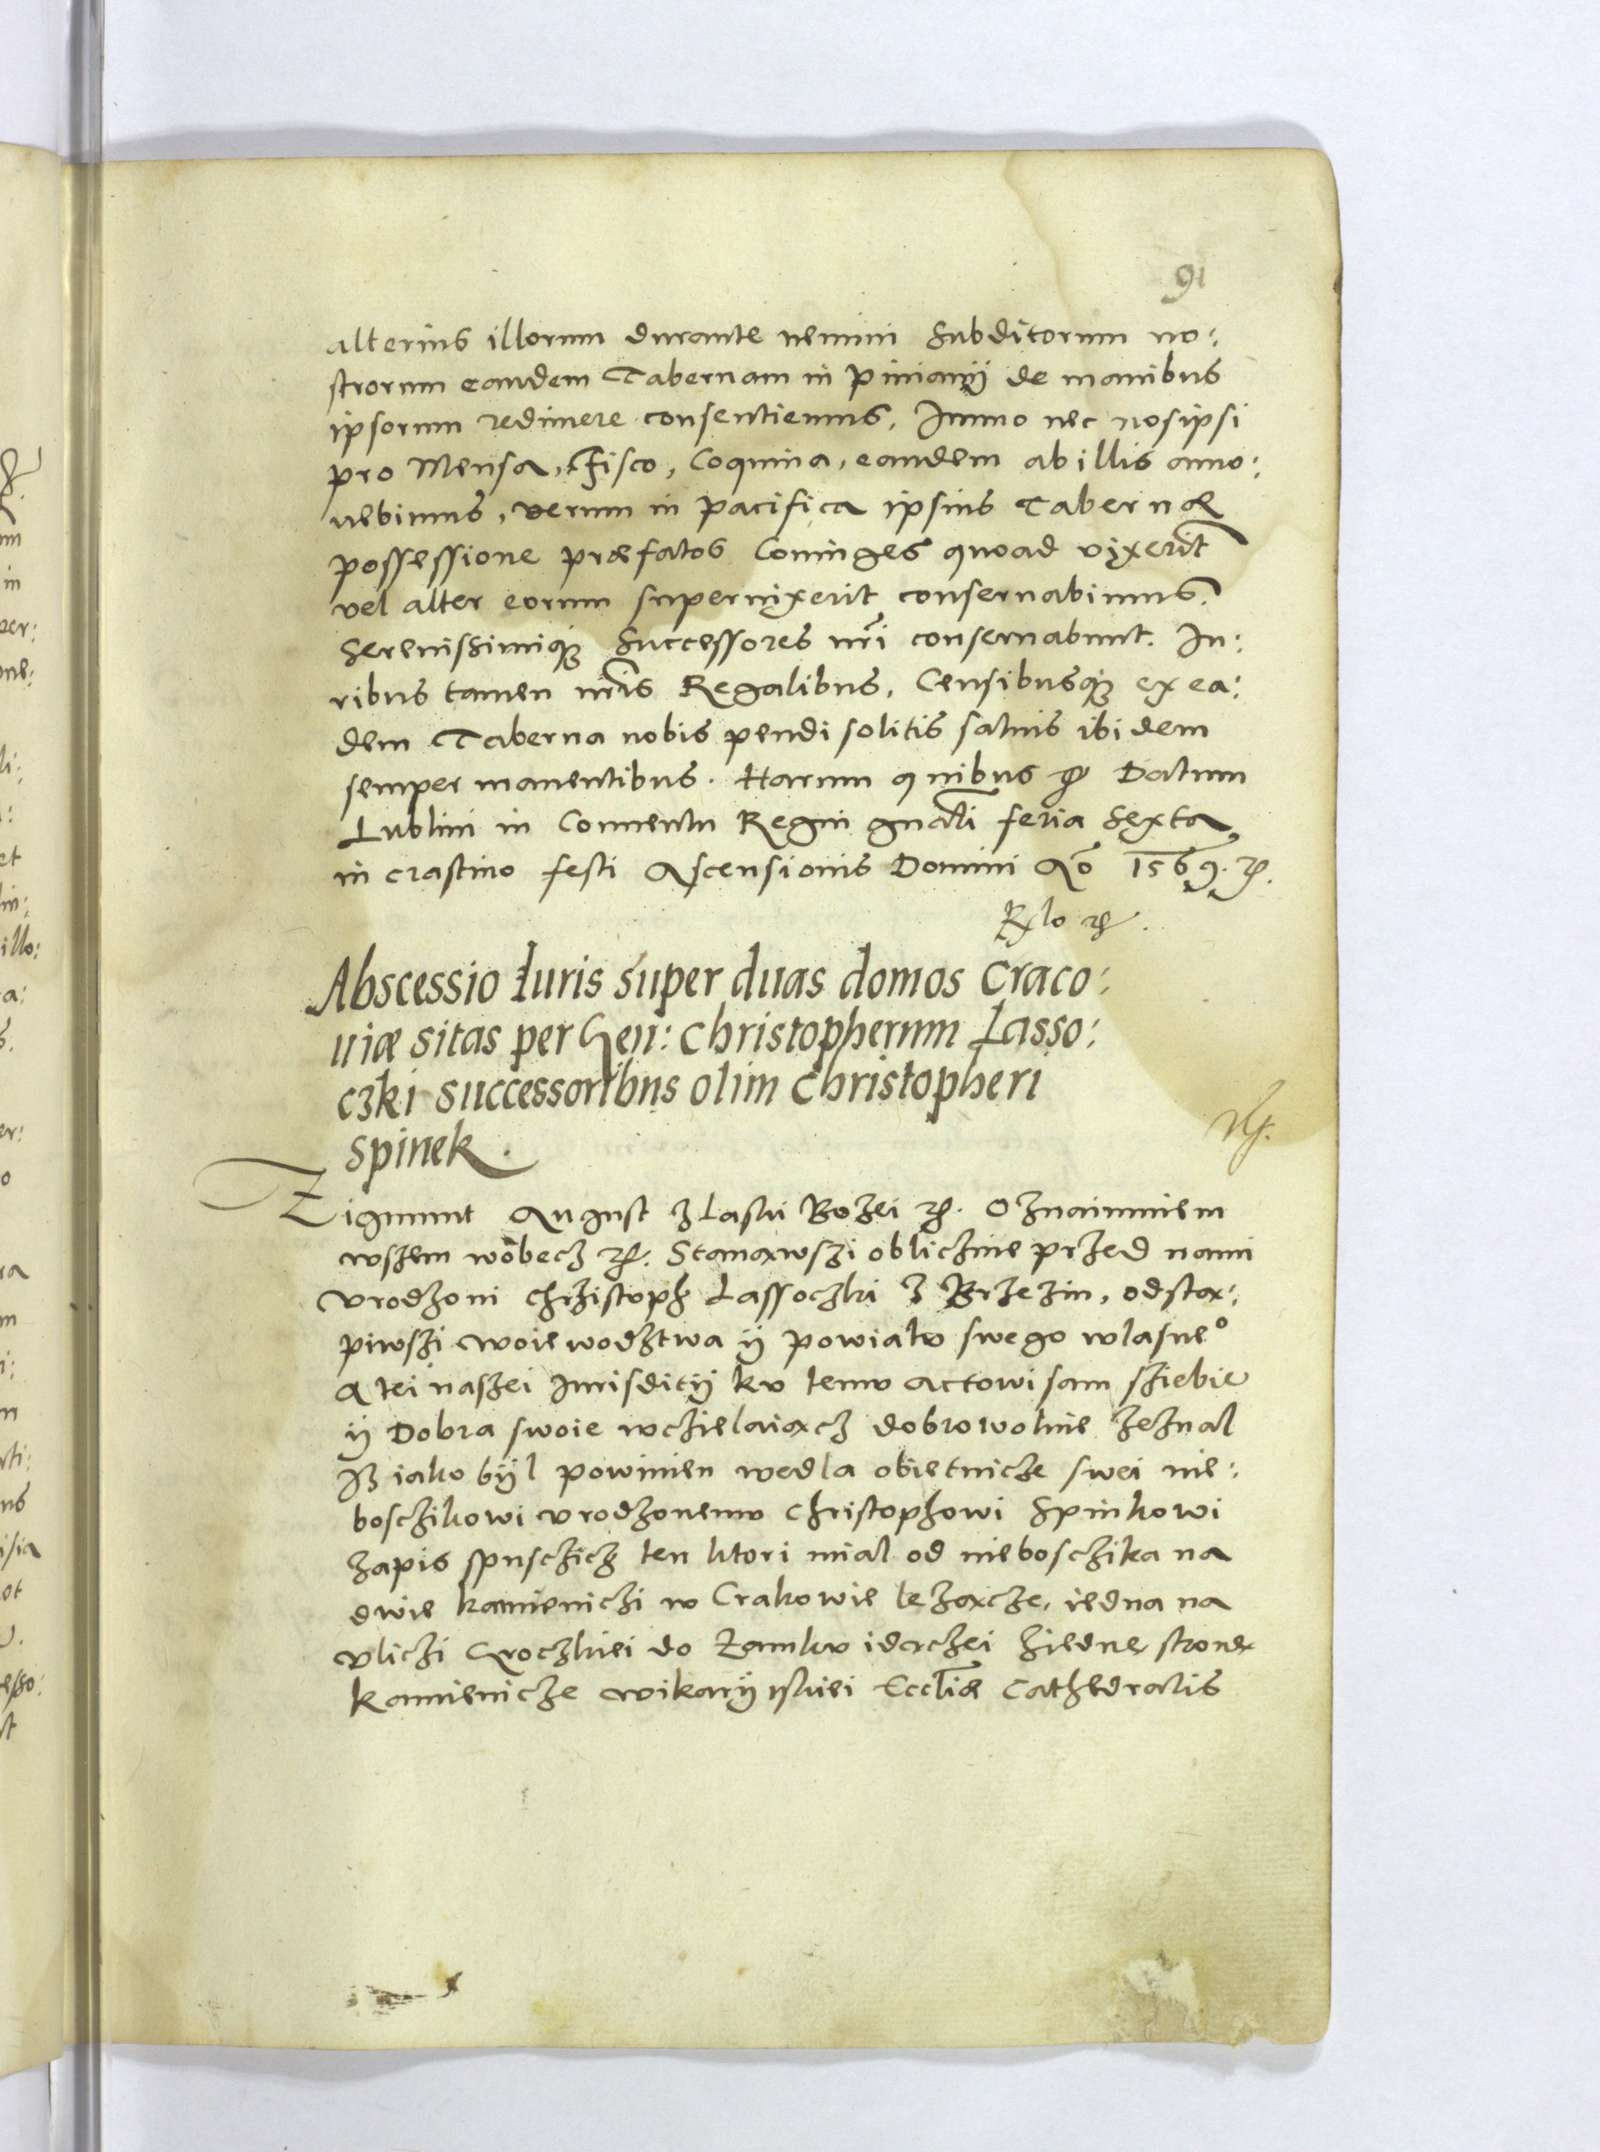 91
alterius illorum durante nemini Subditorum no:
strorum eandem Tabernam in Pinianÿ de manibus
ipsorum redimere consentiemus, Immo nec nos ipsi
pro Mensa, Fisco, Coquina, eandem ab illis amo:
uebimus, verum in pacifica ipsius Tabernæ
possessione præfatos Coniuges quoad vixerit
vel alter eorum superuixerit conseruabimus.
Serenissimiq; Successores nr̃i conseruabunt. Iu:
ribus tamen nr̃is Regalibus, Censibusq; ex ea:
dem Taberna nobis pendi solitis saluis ibidem
semper manentibus. Harum quibus Datum
Lublini in Conuentu Regni gnãli feria Sexta
in crastino festi Ascensionis Domini Aõ 1569.
Abscessio Iuris super duas domos Craco:
uiæ sitas per Gen: Christopherum Lasso:
czki successoribus olim Christopheri
Spinek.
Zigmunt August z Laski Bozei Oznaimuiem
wszem wobecz Stanąwszi oblicznie przed nami
vrodzoni Chrzistoph Lassoczki z Brzezin, odstą:
piwszi woiewodztwa ÿ powiatu swego wlasneº
A tei naszei Iurisditiÿ ku temu actowi sam sziebie
ÿ Dobra swoie wczielaiącz dobrowolnie zeznal
Iż iako bÿl powinien wedla obietnicze swei nie:
boszczikowi vrodzonemu Christophowi Spinkowi
zapis spusczicz ten ktori mial od nieboszczika na
dwie kamieniczi w Crakowie lezącze, iedna na
vliczi Groczkiei do Zamku idączei ziedne stronę
kamienicze wikariÿ istuei Eccl̃iæ Cathedralis